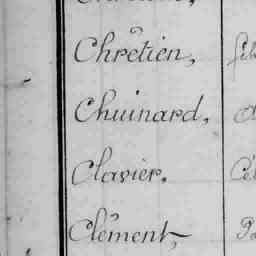 Chrétien,
Chuinard,
Clavier.
Clément,